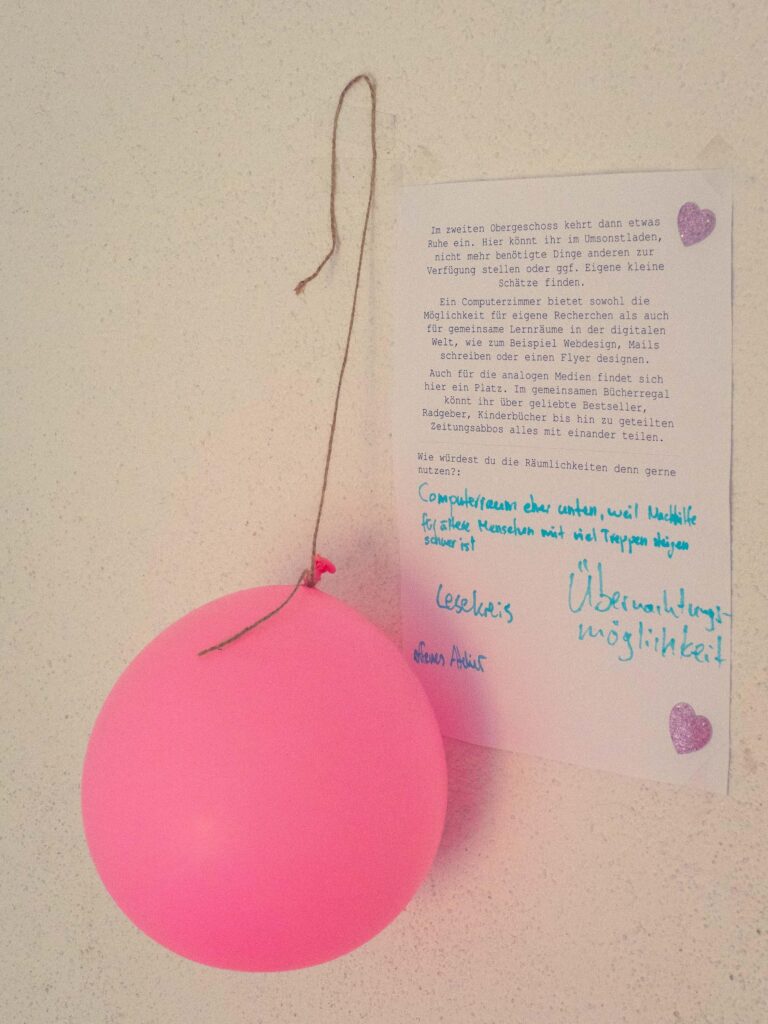 Im zweiten Obergeschoss kehrt dann etwas
Ruhe ein. Hier könnt ihr im Umsonstladen,
nicht mehr benötigte Dinge anderen zur
Verfügung stellen oder ggf. Eigene kleine
Schätze finden.
Ein Computerzimmer bietet sowohl die
Möglichkeit für eigene Recherchen als auch
für gemeinsame Lernräume in der digitalen
Welt, wie zum Beispiel Webdesign, Mails
schreiben oder einen Flyer designen.
Auch für die analogen Medien findet sich
hier ein Platz. Im gemeinsamen Bücherregal
könnt ihr über geliebte Bestseller,
Radgeber, Kinderbücher bis hin zu geteilten
Zeitungsabbos alles mit einander teilen.
Wie würdest du die Räumlichkeiten denn gerne
nutzen?:
Computerraum eher unten, weil Nachhilfe
für ältere Menschen mit viel Treppen steigen
schwer ist
Lesekreis
Übernachtungs-
möglichkeit
offenes Atelier